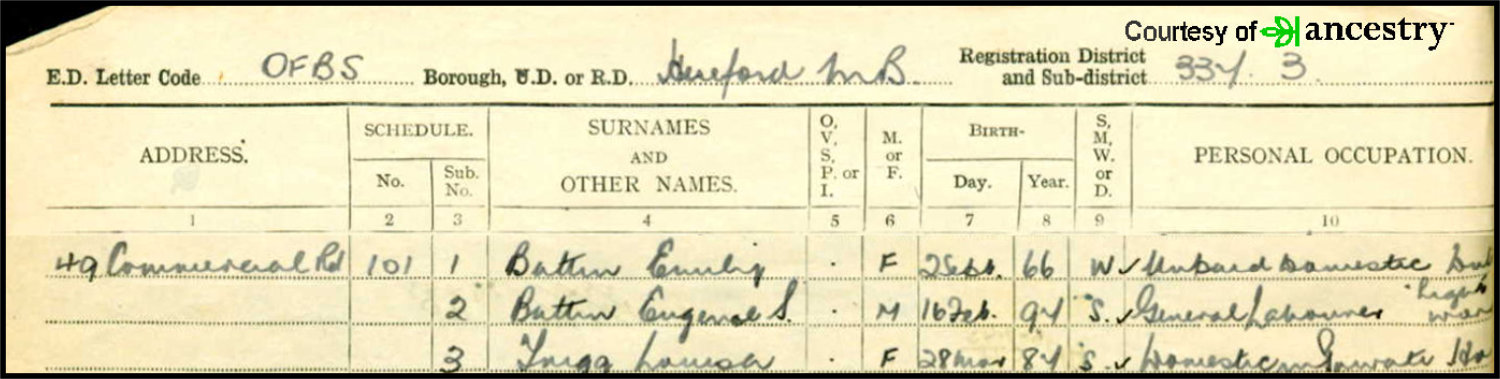 Courtesy of ancestry
E.D. Letter Code OFBS Borough, U.D. or R.D. Hereford M B. Registration District and Sub-district 337. 3.
ADDRESS. SCHEDULE. No. Sub. No. SURNAMES AND OTHER NAMES. O, V, S, P. or I. M. or F. BIRTH- Day. Year. S, M, W. or D. PERSONAL OCCUPATION.
1 2 3 4 5 6 7 8 9 10
49 Commercial Rd 101 1 Battin Emily . F 2 Sept. 66 W ✓ Unpaid Domestic Dut
2 Battin Eugene S. . M 16 Feb. 97 S. ✓ General Labourer
3 Trigg Louisa . F 28 Mar 87 S. ✓ Domestic in Private Ho